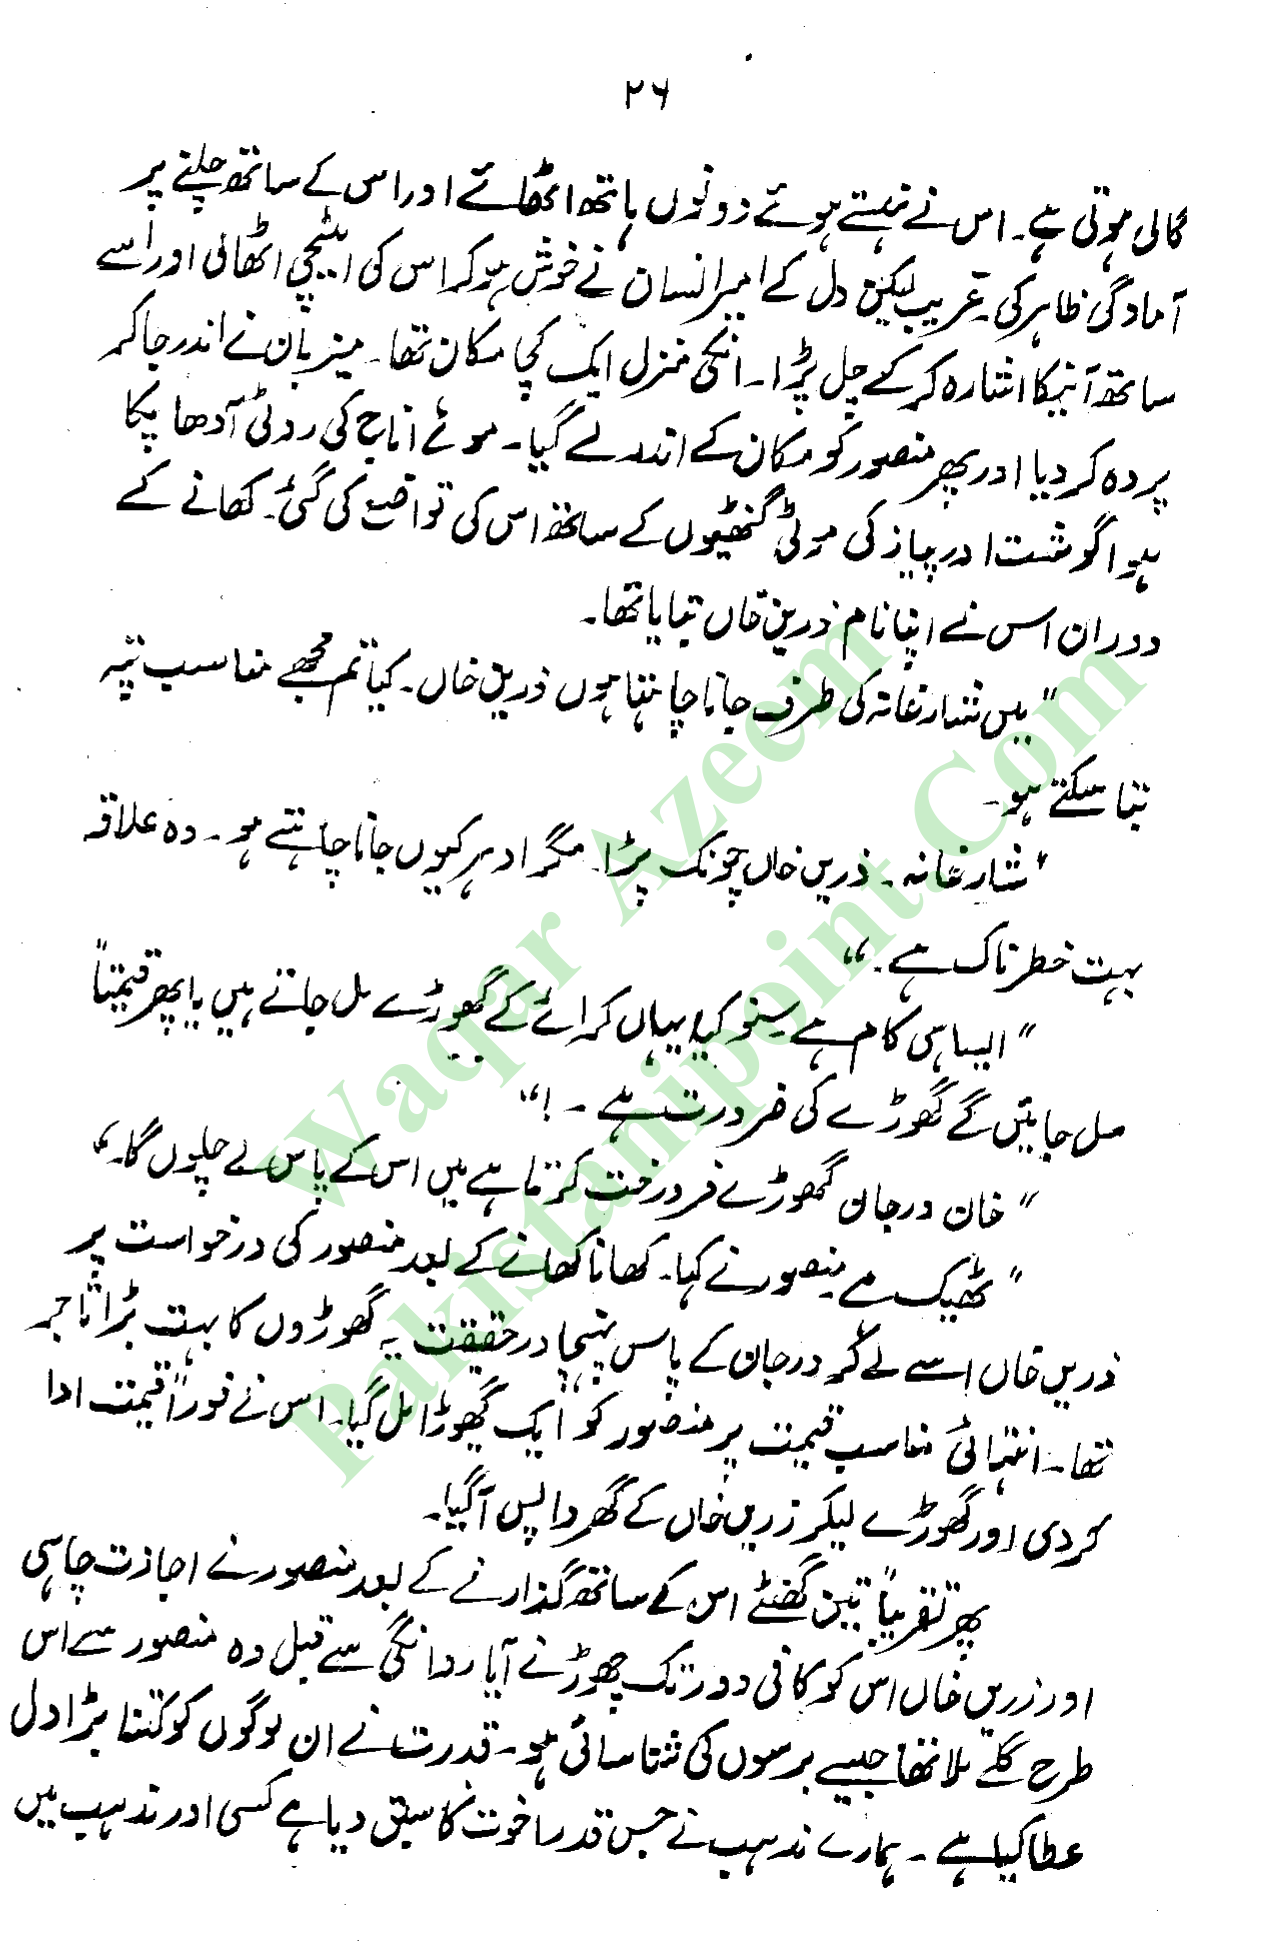 ۲۶
گالی ہوتی ہے۔ اس نے ہنستے ہوئے دونوں ہاتھ اٹھائے اور اس کے ساتھ چلنے پر
آمادگی ظاہر کی۔ غریب لیکن دل کے امیر انسان نے خوش ہو کر اس کی اٹیچی اٹھائی اور اسے
ساتھ آنیکا اشارہ کر کے چل پڑا۔ انکی منزل ایک کچا مکان تھا۔ میزبان نے اندر جا کر
پردہ کر دیا اور پھر منصور کو مکان کے اندر لے گیا۔ موٹے اناج کی روٹی آدھا پکا
ہوا گوشت اور پیاز کی موٹی گنٹھیوں کے ساتھ اس کی تواضع کی گئی۔ کھانے کے
دوران اس نے اپنا نام زرین خاں بتایا تھا۔
"میں شارغانہ کی طرف جانا چاہتا ہوں زرین خاں۔ کیا تم مجھے مناسب پتہ
بتا سکتے ہو۔
"شارغانہ۔ زرین خاں چونک پڑا۔ مگر ادہر کیوں جانا چاہتے ہو۔ وہ علاقہ
بہت خطرناک ہے۔"
"ایسا ہی کام ہے سنو کیا یہاں کرائے کے گھوڑے مل جاتے ہیں یا پھر قیمتاً
مل جائیں گے گھوڑے کی ضرورت ہے۔!"
"خان درجان گھوڑے فروخت کرتا ہے میں اس کے پاس لے چلوں گا۔"
"ٹھیک ہے منصور نے کہا۔ کھانا کھانے کے بعد منصور کی درخواست پر
زریں خاں اسے لے کر درجان کے پاس پہنچا درحقیقت یہ گھوڑوں کا بہت بڑا تاجر
تھا۔ انتہائی مناسب قیمت پر منصور کو ایک گھوڑا مل گیا۔ اس نے فوراً قیمت ادا
کر دی اور گھوڑے لیکر زریں خاں کے گھر واپس آگیا۔
پھر تقریباً تین گھنٹے اس کے ساتھ گذارنے کے بعد منصور نے اجازت چاہی
اور زریں خاں اس کو کافی دور تک چھوڑنے آیا روانگی سے قبل وہ منصور سے اس
طرح گلے ملا تھا جیسے برسوں کی شناسائی ہو۔ قدرت نے ان لوگوں کو کتنا بڑا دل
عطا کیا ہے۔ ہمارے مذہب نے جس قدر اخوت کا سبق دیا ہے کسی اور مذہب میں
Waqar Azeem
Pakistanipoint.Com